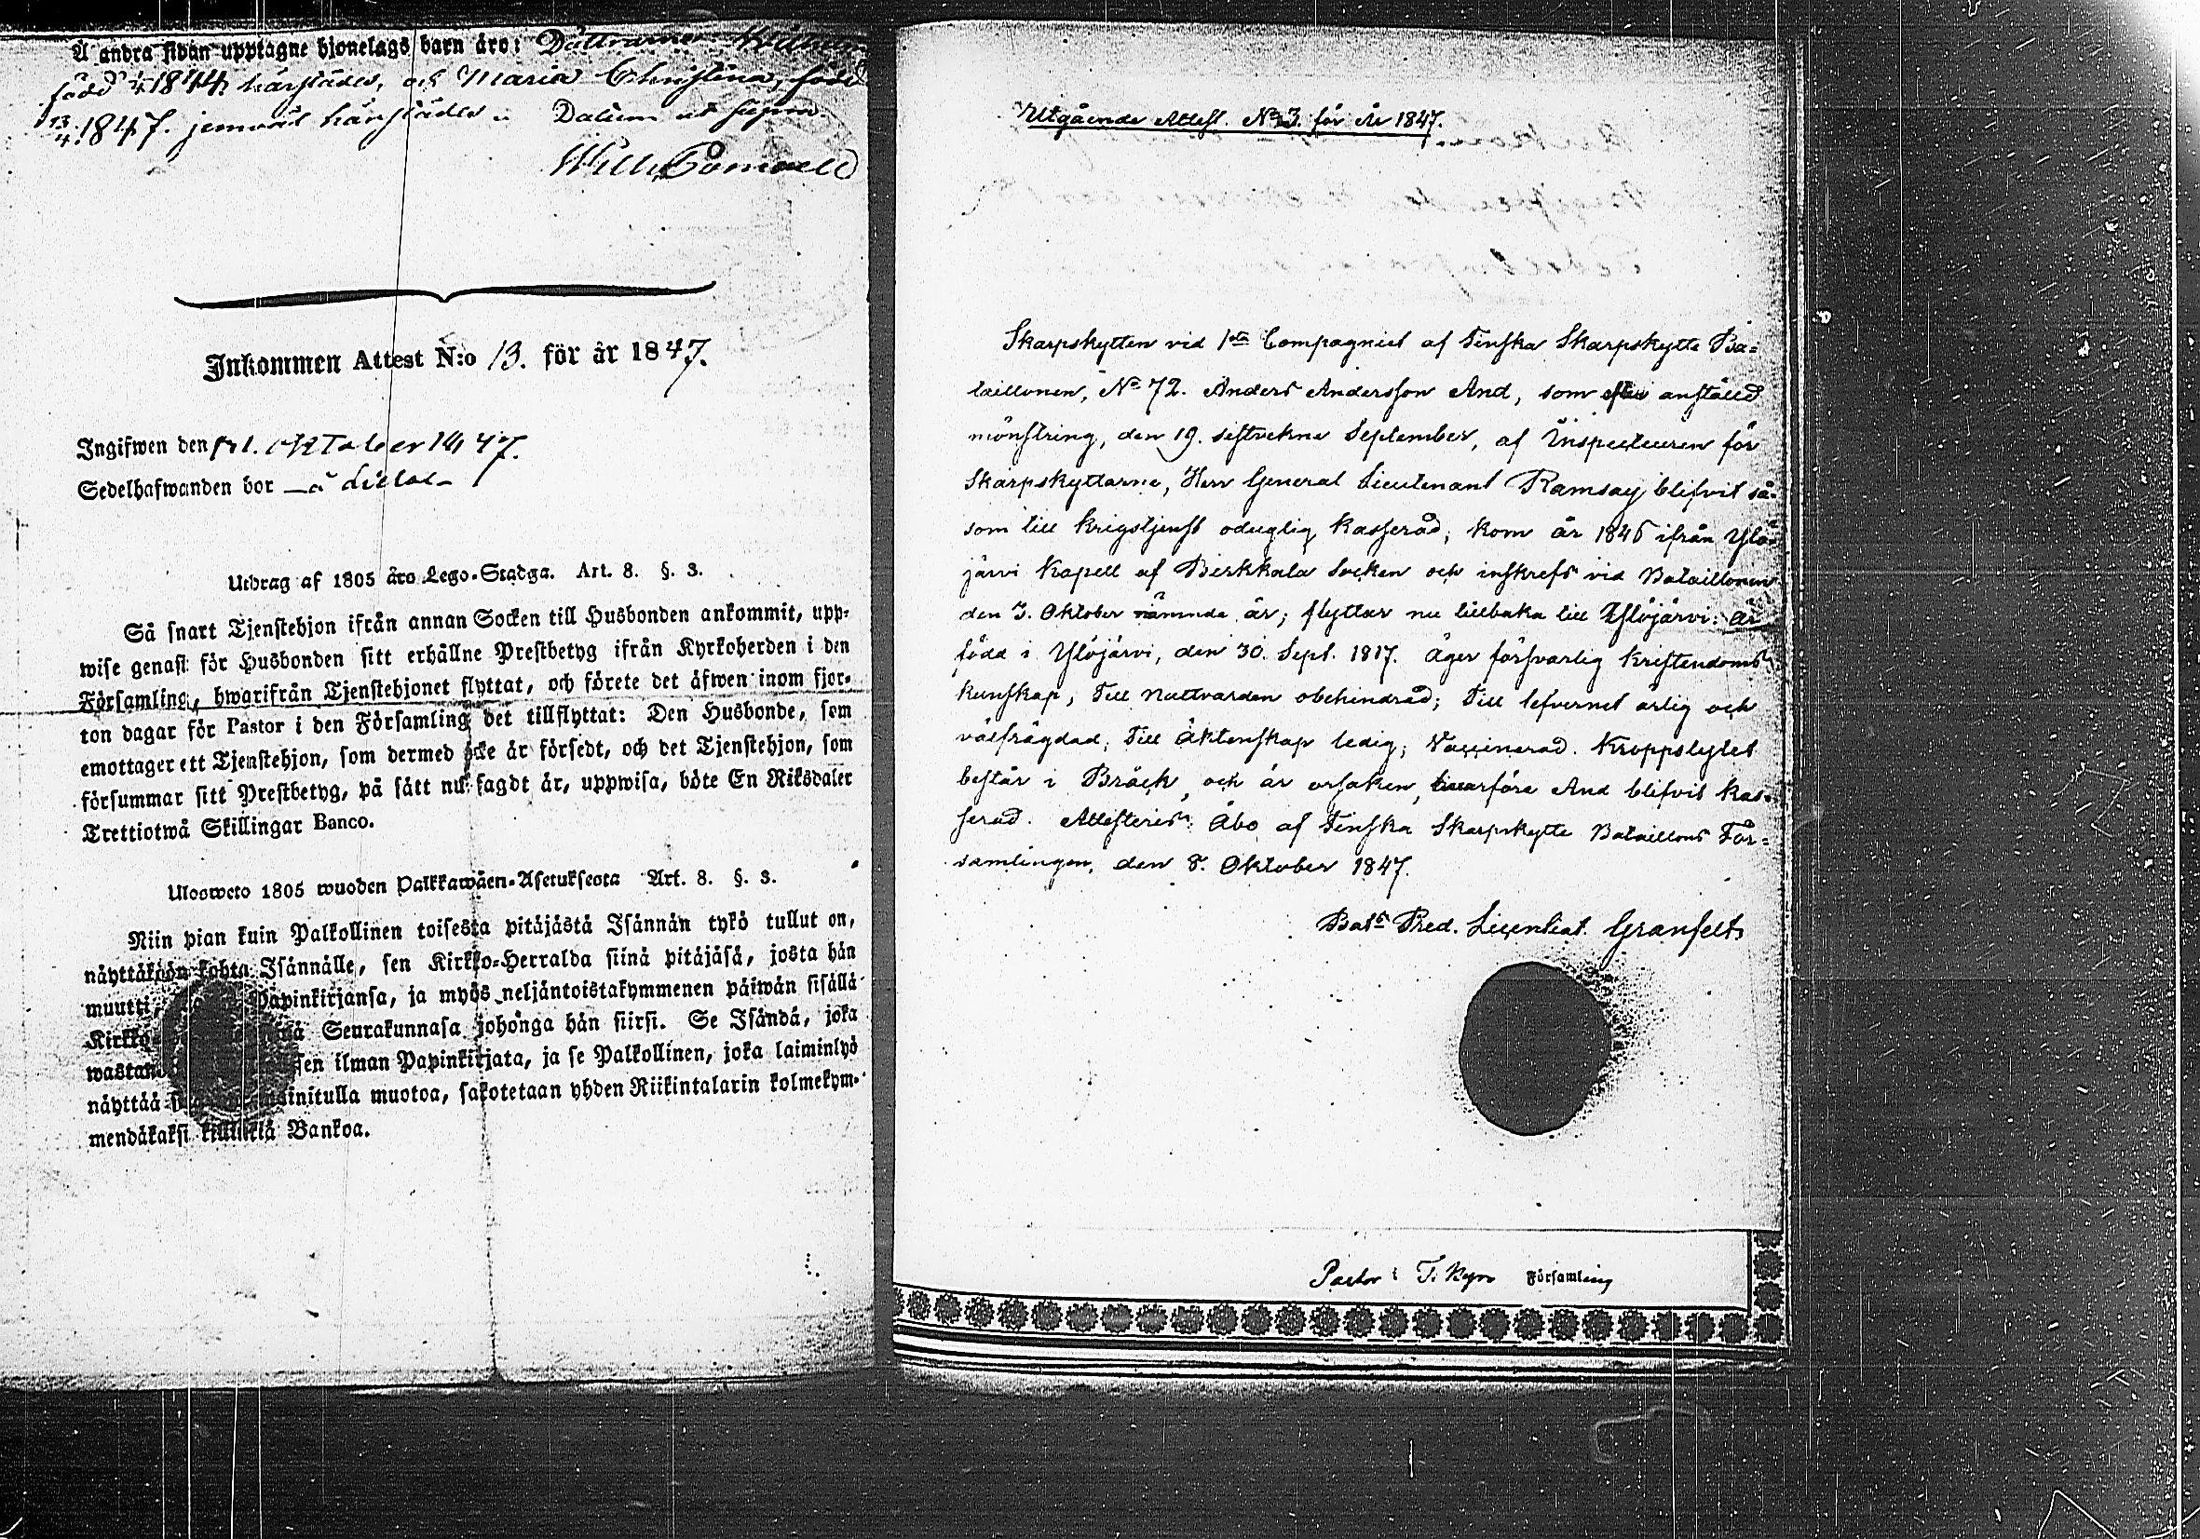 Å andra sidan upptagne hjonelags barn äro: Döttrarne
född 1844 härstädes, och Maria Christina, född
13/4 1847. jemväl härstädes. Datum ut supra.
Inkommen Attest N:o 13. för år 1847.
Ingifwen den Oktober 1847.
Sedelhafwanden bor å
Utdrag af 1805 års Lego-Stadga. Art. 8. §. 3.
Så snart Tjenstehjon ifrån annan Socken till Husbonden ankommit, upp-
wise genast för Husbonden sitt erhållne Prestbetyg ifrån Kyrkoherden i den
Församling, hwarifrån Tjenstehjonet flyttat, och förete det äfwen inom fjor-
ton dagar för Pastor i den Församling det tillflyttat: Den Husbonde, som
emottager ett Tjenstehjon, som dermed icke är försedt, och det Tjenstehjon, som
försummar sitt Prestbetyg, på sätt nu sagdt är, uppwisa, böte En Riksdaler
Trettiotwå Skillingar Banco.
Ulosweto 1805 wuoden Palkkawäen-Asetuksesta Art. 8. §. 3.
Niin pian kuin Palkollinen toisesta pitäjästä Isännän tykö tullut on,
näyttäköön kohta Isännälle, sen Kirkko-Herralda siinä pitäjäsä, josta hän
muutti, Papinkirjansa, ja myös neljäntoistakymmenen päiwän sisällä
Kirkko- Seurakunnasa johonga hän siirsi. Se Isändä, joka
wastan sen ilman Papinkirjata, ja se Palkollinen, joka laiminlyö
näyttää muotoa, sakotetaan yhden Riikintalarin kolmekym-
mendäkaksi killinkiä Bankoa.
Utgående Attest. No 3. för år 1847.
Skarpskytten vid 1sta Compagniet af Finska Skarpskytte Ba-
taillonen, No 72. Anders Andersson And, som efter anställd
mönstring, den 19. sistvekne September, af Inspecteuren för
Skarpskyttarne, Herr General Lieutenant Ramsay blifvit så-
som till krigstjenst oduglig kasserad, kom år 1846 ifrån Ylö-
järvi Kapell af Birkkala Socken och inskrefs vid Bataillonen
den 3. Oktober nämnda år; flyttar nu tillbaka till Ylöjärvi: är
född i Ylöjärvi, den 30. Sept. 1817. Äger försvarlig kristendoms
kunskap, Till nattvarden obehindrad; Till lefvernet ärlig och
välfrägdad; Till äktenskap ledig; Vaccinerad. Kroppslytet
består i Bråck, och är orsaken, hvarföre And blifvit kas-
serad. Attesteris: Åbo af Finska Skarpskytte Bataillons För-
samlingen, den 8. Oktober 1847.
Bats Pred. Licentiat. Granfelt
Pastor i T. Kyro Församling